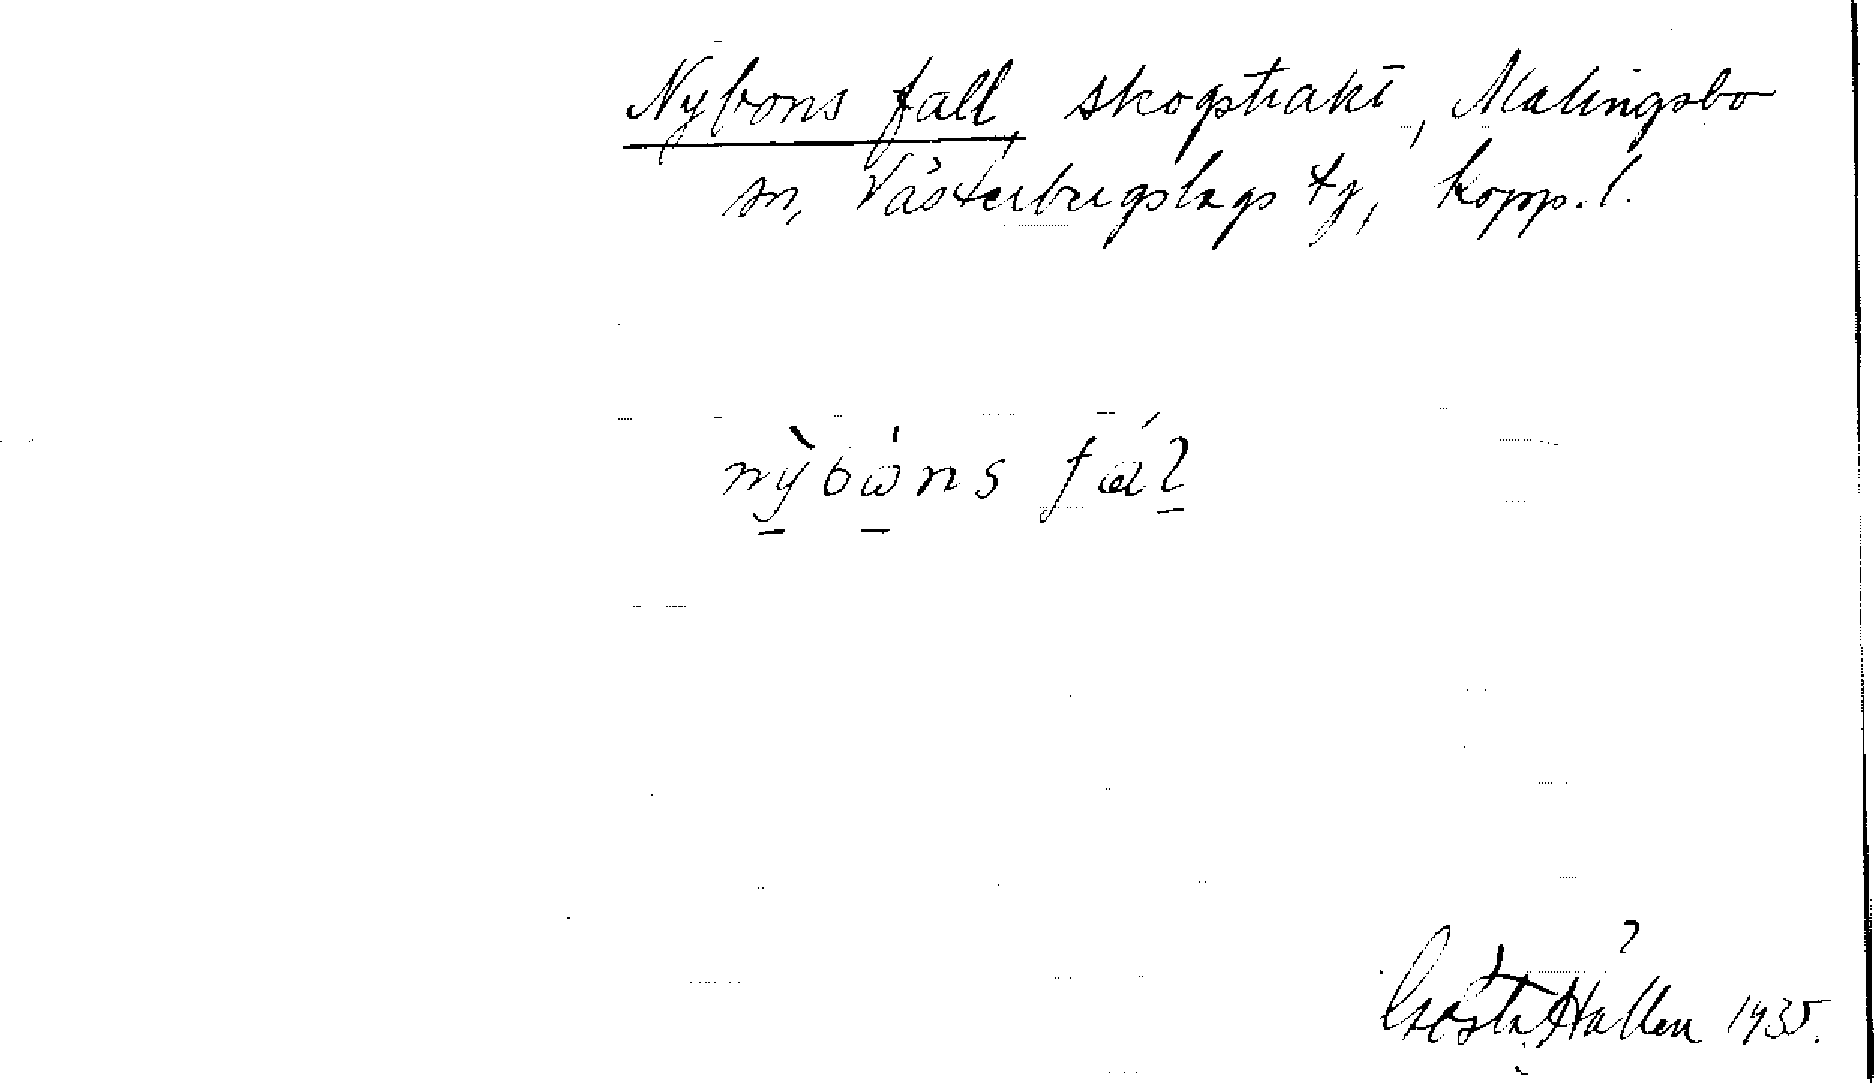 Nybons fall, skogstrakt, Malingsbo
sn, Västerbergslags tg, Kopp. l.
nỳbω̇ns fál
Gösta Hallen 1935.